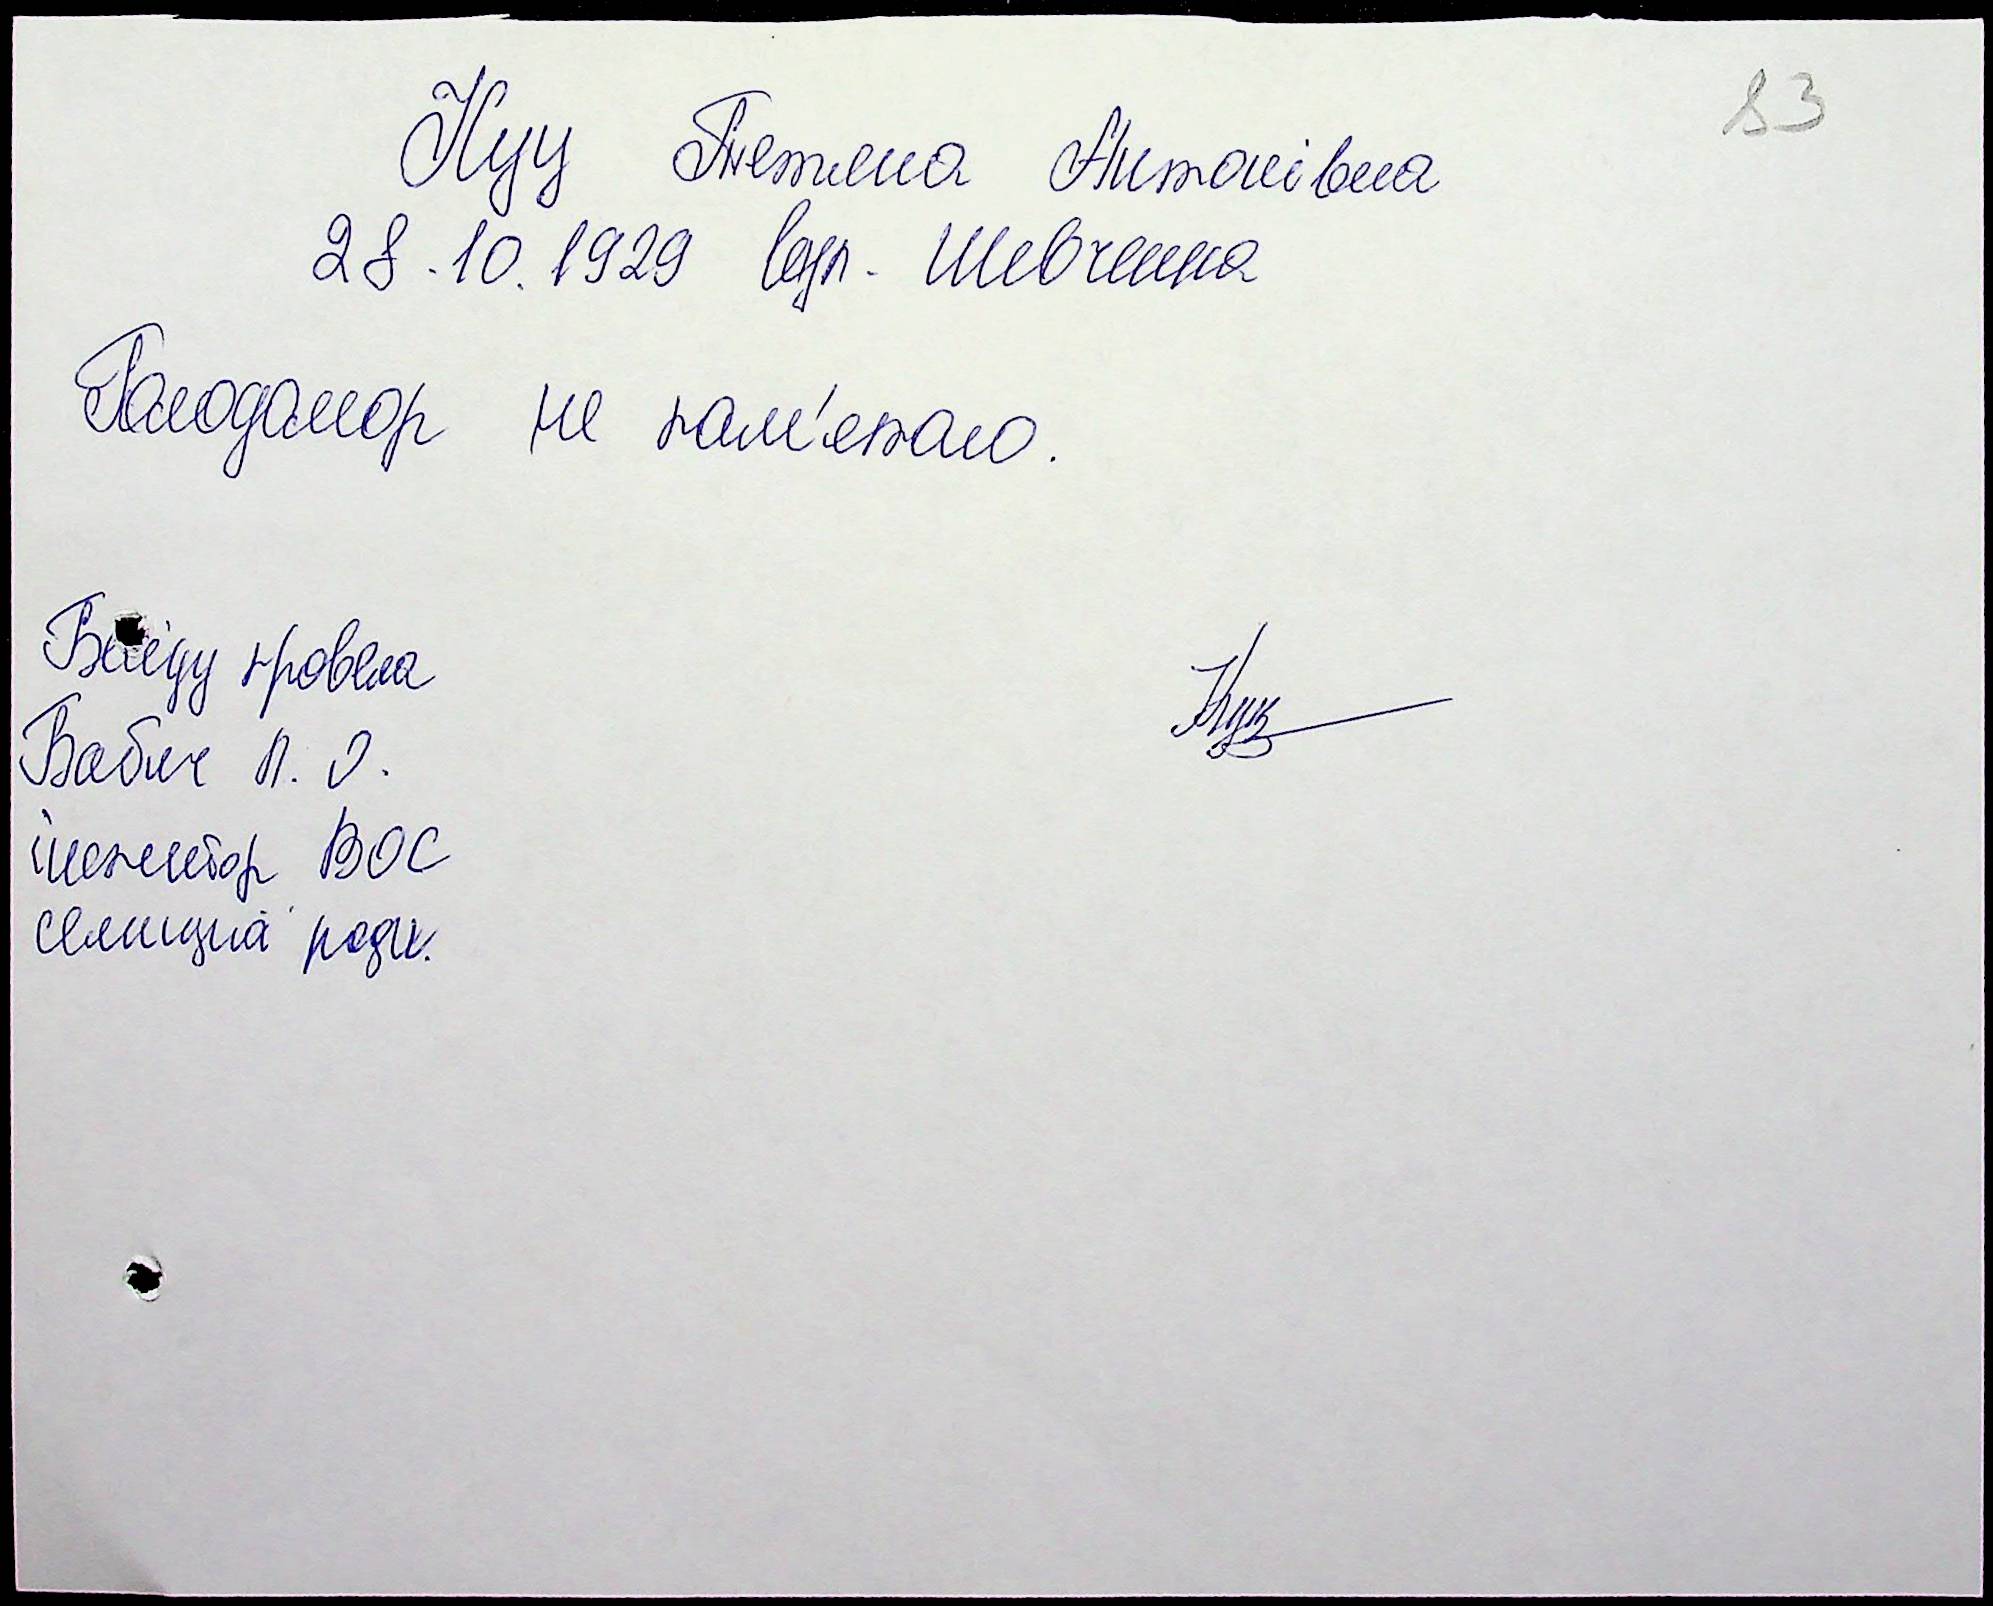 83
Куц Тетяна Антонівна
28.10.1929 вул. Шевченка
Голодомор не пам'ятаю.
Бесіду провела
Бабич Л. О.
Куц
інспектор ВОС
селищна рада.